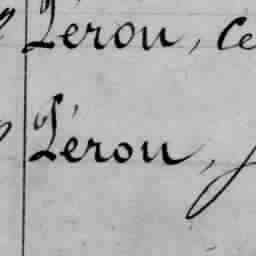 Pérou, Ce
Pérou,